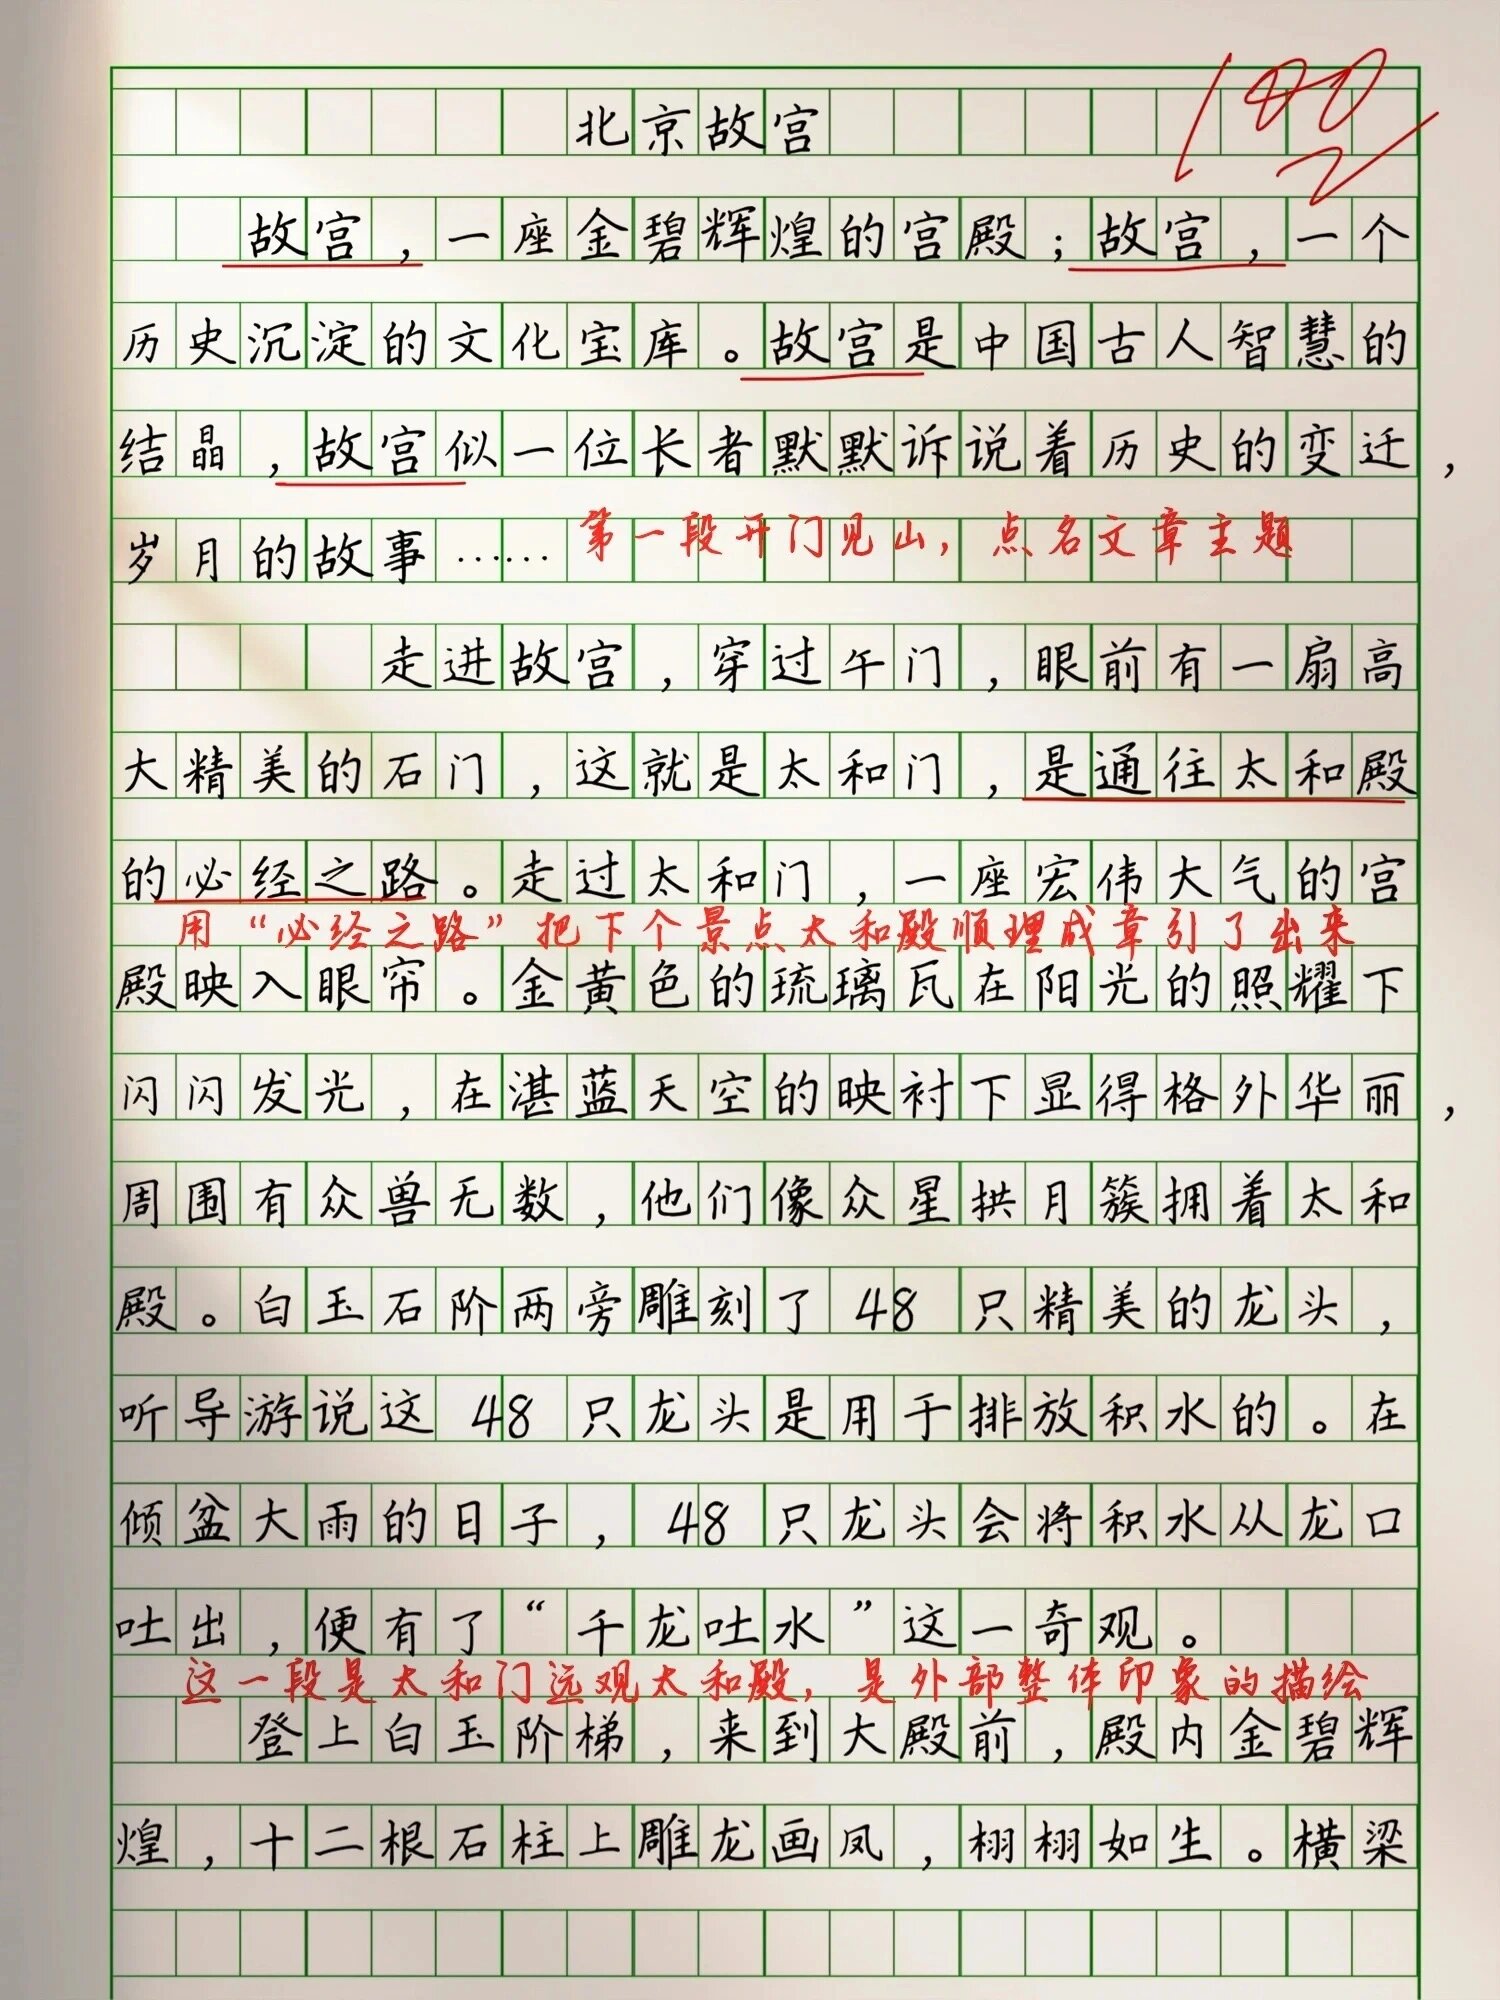 北京故宫
100
故宫，一座金碧辉煌的宫殿；故宫，一个
历史沉淀的文化宝库。故宫是中国古人智慧的
结晶，故宫似一位长者默默诉说着历史的变迁，
岁月的故事……
第一段开门见山，点名文章主题
走进故宫，穿过午门，眼前有一扇高
大精美的石门，这就是太和门，是通往太和殿
的必经之路。走过太和门，一座宏伟大气的宫
用“必经之路”把下个景点太和殿顺理成章引了出来
殿映入眼帘。金黄色的琉璃瓦在阳光的照耀下
闪闪发光，在湛蓝天空的映衬下显得格外华丽，
周围有众兽无数，他们像众星拱月簇拥着太和
殿。白玉石阶两旁雕刻了48只精美的龙头，
听导游说这48只龙头是用于排放积水的。在
倾盆大雨的日子，48只龙头会将积水从龙口
吐出，便有了“千龙吐水”这一奇观。
这一段是太和门远观太和殿，是外部整体印象的描绘
登上白玉阶梯，来到大殿前，殿内金碧辉
煌，十二根石柱上雕龙画凤，栩栩如生。横梁